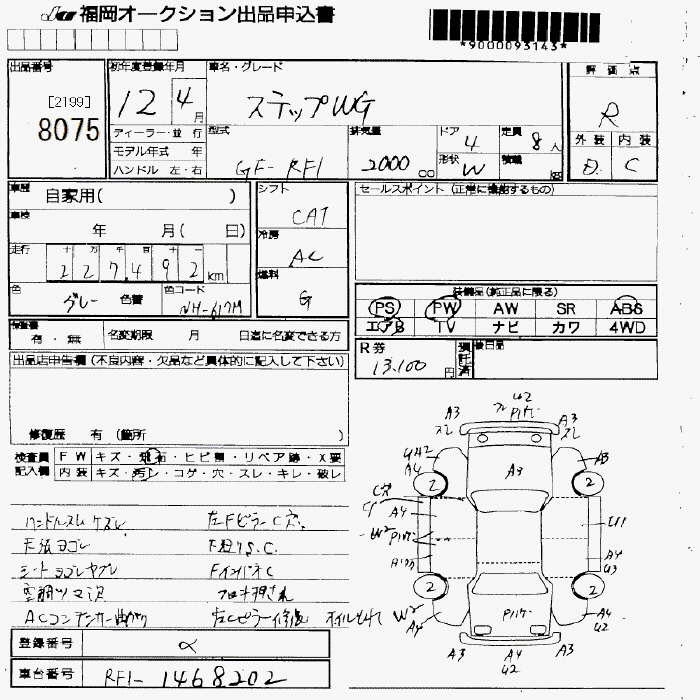 福岡オークション出品申込書
*9000093143*
出品番号
[2199]
8075
初年度登録年月
12 4月
車名・グレード
ステップWG
評価点
R
外装 内装
D C
ディーラー・並行
モデル年式 年
ハンドル 左・右
型式
GF-RF1
排気量
2000 cc
ドア
4
形状
W
定員
8人
積載
kg
車歴
自家用( )
車検
年 月( 日)
走行
十 万 千 百 十 一
227,492km
色
グレー
色替
色コード
NH-617M
シフト
CAT
冷房
AC
燃料
G
セールスポイント(正常に機能するもの)
装備品(純正品に限る)
PS PW AW SR ABS
エアB TV ナビ カワ 4WD
検査書
有・無
名変期限 月 日迄に名変できる方
R券
13,100円
預託済
後日品
出品店申告欄(不良内容・欠品など具体的に記入して下さい)
修復歴 有(箇所 )
検査員記入欄
FW キズ・飛石・ヒビ割・リペア跡・X要
内装 キズ・汚レ・コゲ・穴・スレ・キレ・破レ
ハンドルスレ ケズレ
左Fピラー C穴
天張ヨゴレ
下廻りS.C.
シートヨゴレヤブレ
FインパネC
フロア押され
ACコンデンサー曲がり
左Cピラー修復
オイルもれ
登録番号
α
車台番号
RF1-1468202
A3
スレ
A3
スレ
A3
A4
A3
2
2
C穴
A4
U1
W2
A4
U3
2
2
W2
A4
A4
U2
A3
A4
U2
A3